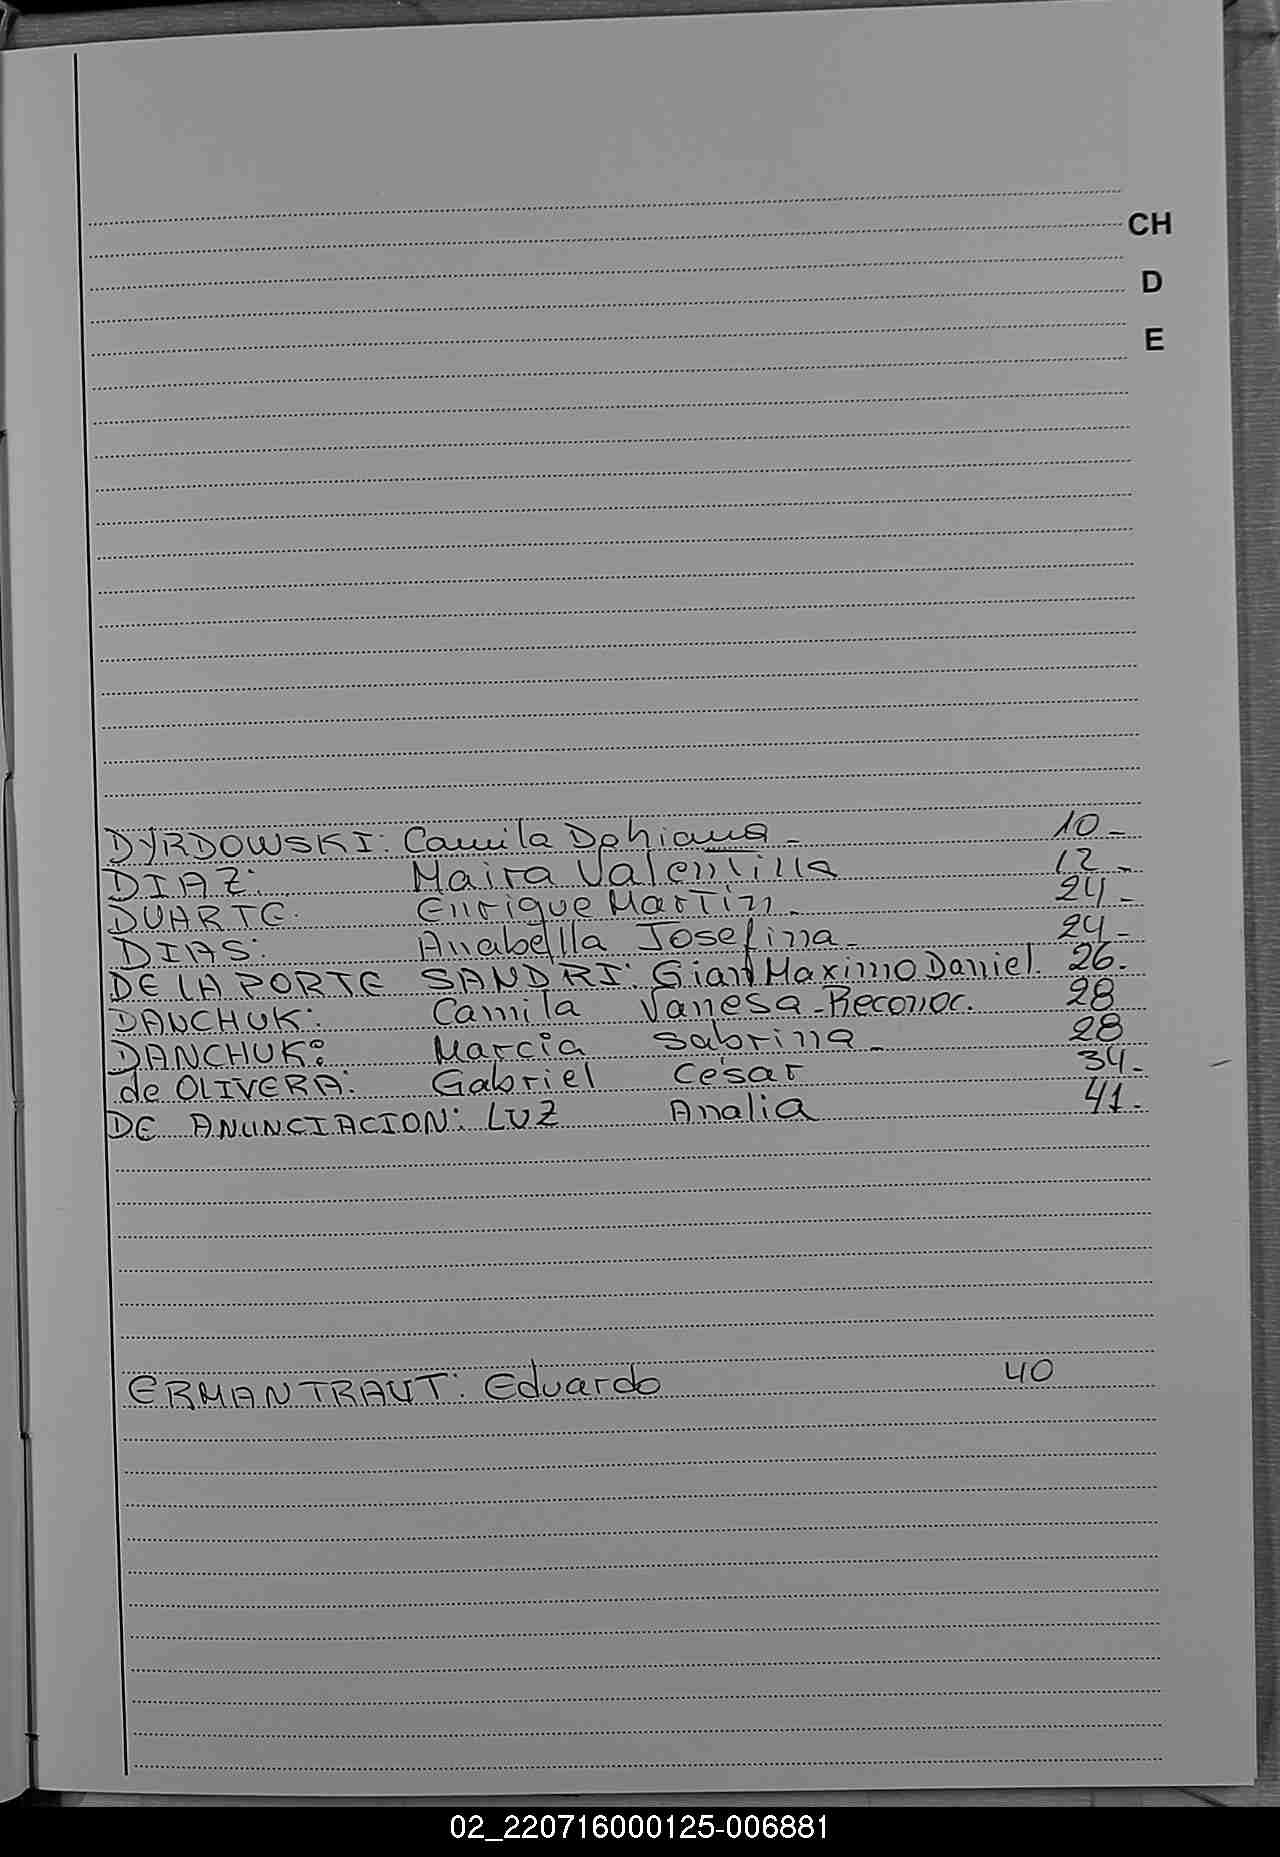 CH
D
E
DYRDOWSKI: Camila Dahiana - 10-
DIAZ: Maira Valentina 12-
DUARTE. Enrique Martin. 24-
DIAS: Anabella Josefina - 24-
DE LA PORTE SANDRI: Gian Maximo Daniel. 26.
DANCHUK: Camila Vanesa - Reconoc. 28
DANCHUK: Marcia Sabrina - 28
de OLIVERA: Gabriel César 34-
DE ANUNCIACION: LUZ Analia 41-
ERMANTRAUT: Eduardo 40
02_220716000125-006881